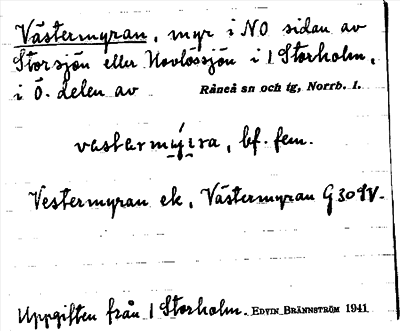 Västermyran, myr i NO sidan av
Storsjön eller Hovlössjön i 1 Storholm,
i Ö. delen av Råneå sn och tg, Norrb. l.
vastarmýra, bf. fem.
Vestermyran ek, Västermyran G 30 SV.
Uppgiften från 1 Storholm. EDVIN BRÄNNSTRÖM 1941